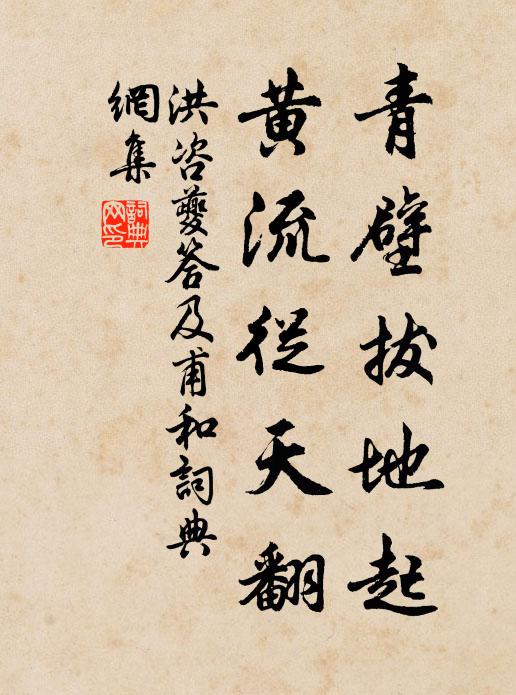 青壁拔地起
黃流從天翻
洪咨夔答及甫和詞典
網集
詞典
网印